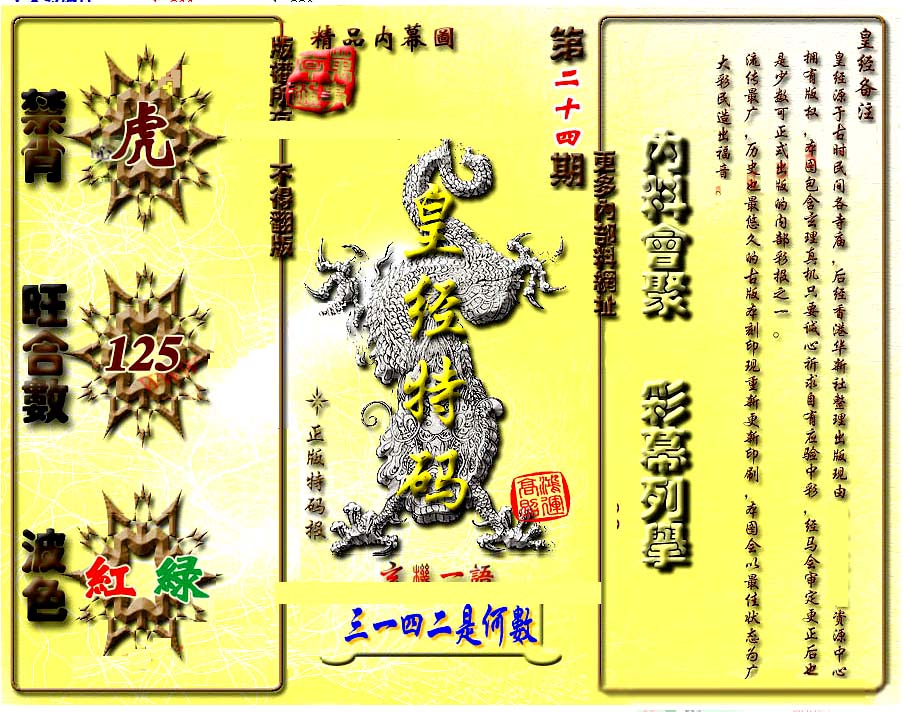 精品内幕圖
第二十四期
版權所有
不得翻版
更多內部料網址
禁肖
虎
旺合數
125
波色
紅 綠
皇经特码
正版特码报
鴻運高照
玄機一語
三一四二是何數
內料會聚
彩幕列舉
皇经备注
皇经源于古时民间各寺庙，后经香港华新社整理出版现由 资源中心
拥有版权，本图包含玄理真机只要诚心祈求自有应验中彩，经马会审定更正后也
是少数可正式出版的内部彩报之一。
流传最广，历史也最悠久的古版本刻印现重新更新印刷，本图会以最佳状态为广
大彩民造出福音。